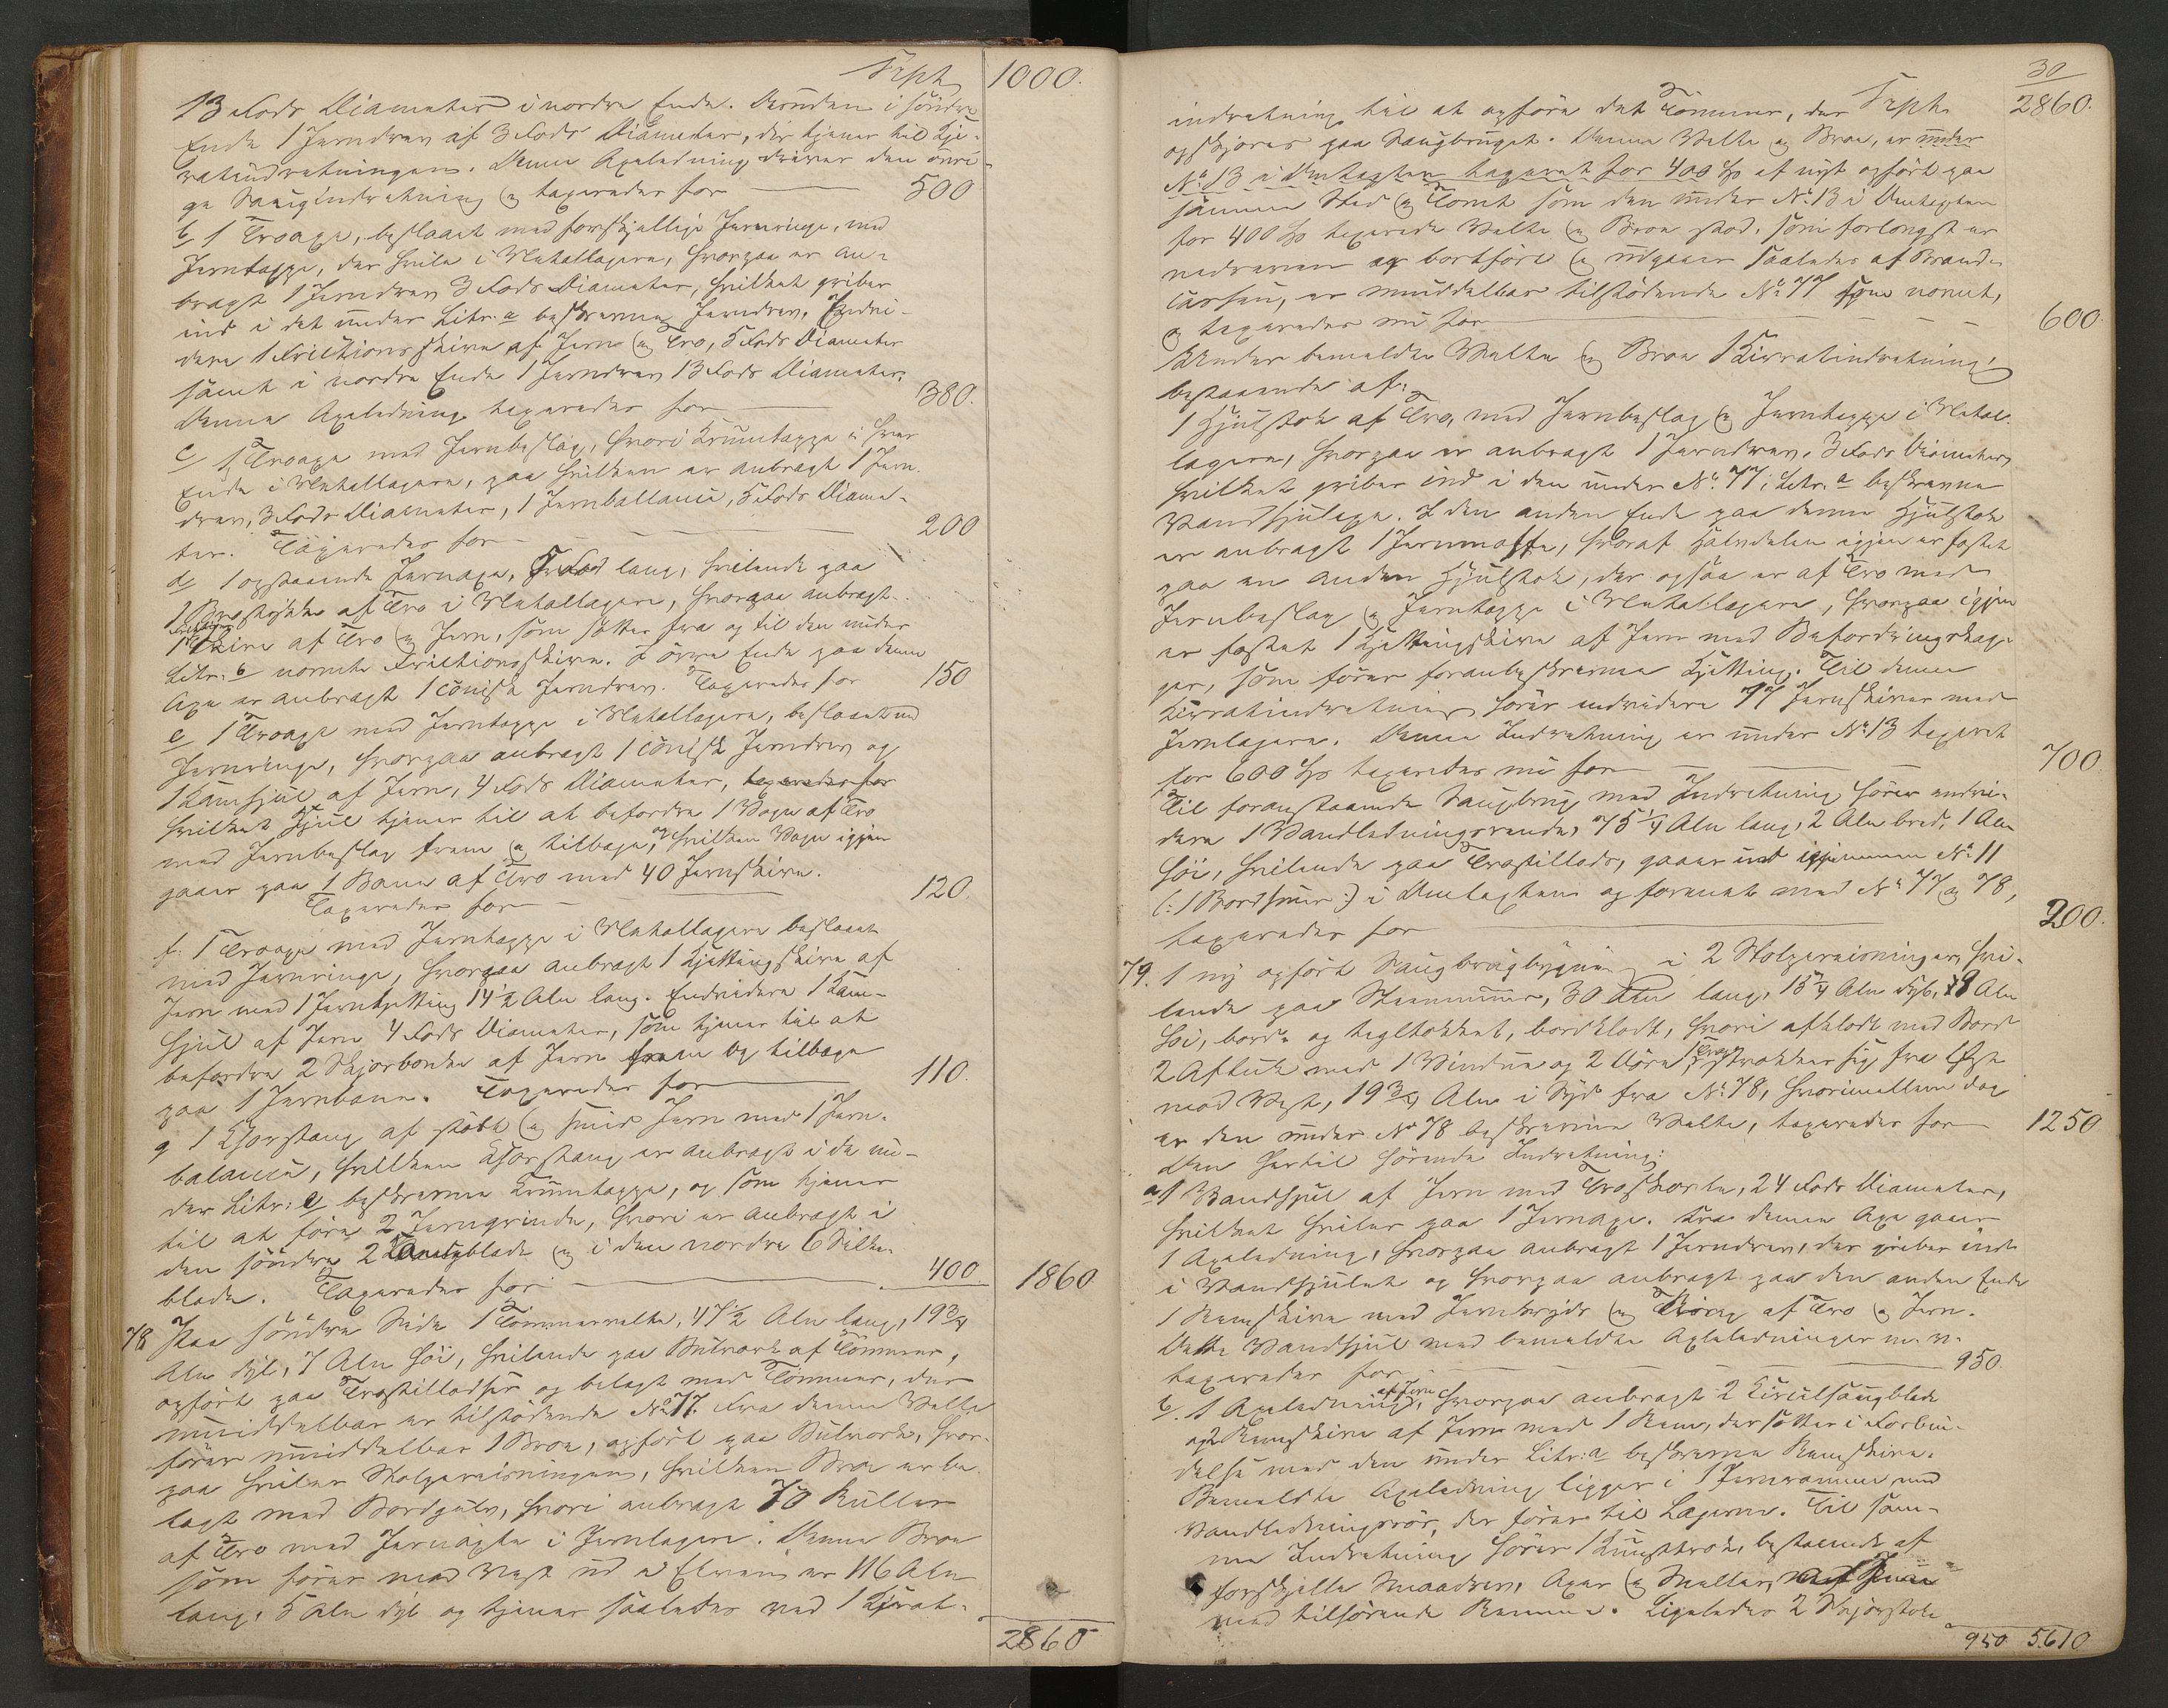 Trspt. 1000.
13 Fods Diameter i nordre Ende. Desuden i söndre
Ende 1 Jerndrev af 3 Fods Diameter, der tjener til Kjer-
ratindretningen. Denne Axeledning driver den övri-
ge Saugindretning og taxeredes for 500
b, 1 Træaxe, beslaaet med forskjellige Jernringe, med
Jerntappe, der hvile i Metallagere, hvorpaa er an-
bragt 1 Jerndrev 3 Fods Diameter, hvilket griber
ind i det under Litr. a beskrevne Jerndrev. Endvi-
dere 1 Frictionsskive af Jern og Træ, 5 Fods Diameter
samt i nordre Ende 1 Jerndrev 13 Fods Diameter.
Denne Axeledning taxeredes for 380.
c, 1 Træaxe med Jernbeslag, hvori Krumtappe i hver
Ende i Metallagere, paa hvilken er anbragt 1 Jern-
drev, 3 Fods Diameter, 1 Jernballance, 5 Fods Diame-
ter. Taxeredes for 200
d, 1 opstaaende Jernaxe, Fod lang, hvilende paa
1 af Træ i Metallagere, hvorpaa anbragt
1 Skive af Træ og Jern, som sætter fra og til den under
Litr. b nævnte Frictionsskive. I övre Ende paa denne
Axe er anbragt 1 conisk Jerndrev. Taxeredes for 150
e, 1 Træaxe med Jerntappe i Metallagere, beslaaet med
Jernringe, hvorpaa anbragt 1 conisk Jerndrev og
1 Kamhjul af Jern, 4 Fods Diameter, taxeredes for
hvilket Hjul tjener til at befordre 1 Vogn af Træ
med Jernbeslag frem og tilbage, hvilken Vogn igjen
gaaer paa 1 Bane af Træ med 40 Jernskiver.
Taxeredes for 120.
f. 1 Træaxe med Jerntappe i Metallagere beslaaet
med Jernringe, hvorpaa anbragt 1 Kjettingskive af
Jern med 1 Jernkjetting 14½ Alen lang. Endvidere 1 Kam-
hjul af Jern 4 Fods Diameter, som tjener til at
befordre 2 Skjorbænke af Jern frem og tilbage
paa 1 Jernbane. Taxeredes for 110.
g 1 Korstang af stöbt og smid Jern med 1 Jern-
balance, hvilken Korstang er anbragt i de un-
der Litr: c beskrevne Krumtappe, og som tjener
til at före 2 Jerngrinde, hvori er anbragt i
den söndre 2 Saugblade og i den nordre 6 Silke-
blade. Taxeredes for 400 1860.
78 Paa söndre Side 1 Tömmervelte, 47½ Alen lang, 19¾
Alen dyb, 7 Alen höi, hvilende paa Bulværk af Tömmer,
opfört paa Træstilladser og belagt med Tömmer, der
umiddelbar er tilstödende No 77. Fra denne Velte
förer umiddelbar 1 Broe, opfört paa Bulværk, hvor-
paa hviler Stolpereisningen, hvilken Broe er be-
lagt med Bordgulv, hvori anbragt 70 Ruller
af Træ med Jernaxler i Jernlagere. Denne Broe
som förer mod Vest ud i Elven er 116 Alen
lang, 5 Alen dyb og tjener saaledes ved 1 Kjerrat-
2860
30
indretning til at opföre det Tömmer, der Trspt. 2860.
opskjæres paa Saugbruget. Denne Velte og Broe, er under
No 13 i Omtaxten taxeret for 400 Sp af nyt opfört paa
samme Sted og Tomt som den under No 13 i Omtaxten
for 400 Sp taxerede Velte og Broe stod, som forlængst er
nedreven og bortfört og udgaaer saaledes af Brand-
cassen, er umiddelbar tilstödende No 77 som nævnt,
og taxeredes nu for 600.
Under bemeldte Velte og Broe 1 Kjerratindretning,
bestaaende af:
1 Hjulstok af Træ, med Jernbeslag og Jerntappe i Metal-
lagere, hvorpaa er anbragt 1 Jerndrev, 3 Fods Diameter,
hvilket griber ind i den under No 77, Litr. a beskrevne
Vandhjulaxe. I den anden Ende paa denne Hjulstok
er anbragt 1 Jernmuffe, hvoraf Halvdelen igjen er fæstet
paa en anden Hjulstok, der ogsaa er af Træ med
Jernbeslag og Jerntappe i Metallagere, hvorpaa igjen
er fæstet 1 Kjettingskive af Jern med Befordringshage-
ger, som förer foranbeskrevne Kjetting. Til denne
Kjerratindretning hörer endvidere 77 Jernskiver med
Jernlagere. Denne Indretning er under No 13 taxeret
for 600 Sp taxeredes nu for 700
Til foranstaaende Saugbrug med Indretning hörer endvi-
dere 1 Vandledningsrende, 75¼ Alen lang, 2 Alen bred, 1 Alen
höi, hvilende paa Træstillads, gaaer ind igjennem No 11
(: 1 Bordskuur :) i Omtaxten og forenet med No 77 og 78,
taxeredes for 200.
79. 1 ny opfört Saugbrugbygning i 2 Stolpereisninger, hvi-
lende paa Steenmuur, 30 Alen lang, 15¼ Alen dyb, 8 Alen
höi, bord- og tegltækket, bordklædt, hvori afklædt med Bord
2 Aflukker med 1 Vindue og 2 Döre, strækker sig fra Öst
mod Vest, 19¾ Alen i Syd fra No 78, hvorimellem dog
er den under No 78 beskrevne Velte, taxeredes for 1250
Den hertil hörende Indretning:
a 1 Vandhjul af Jern med Træskovle, 24 Fods Diameter,
hvilket hviler paa 1 Jernaxe. Fra denne Axe gaaer
1 Axeledning, hvorpaa anbragt 1 Jerndrev, der griber ind
i Vandhjulet og hvorpaa anbragt paa den anden Ende
1 Remskive med Jernkryds og af Træ og Jern.
Dette Vandhjul med bemeldte Axeledninger m. v.
taxeredes for 950.
b. 1 Axeledning af Jern, hvorpaa anbragt 2 Circulsaugblade
og 2 Remskiver af Jern med 1 Rem, der sætter i Forbin-
delse med den under Litr: a beskrevne Remskive.
Bemeldte Axeledning ligger i 1 Jernramme med
Vandledningsrör, der förer til Lagerne. Til sam-
me Indretning hörer 1 bestaaende af
forskjellige Smaadrev, Axer og
med tilhörende Remme. Ligeledes 2 Skjörstole
950 5610